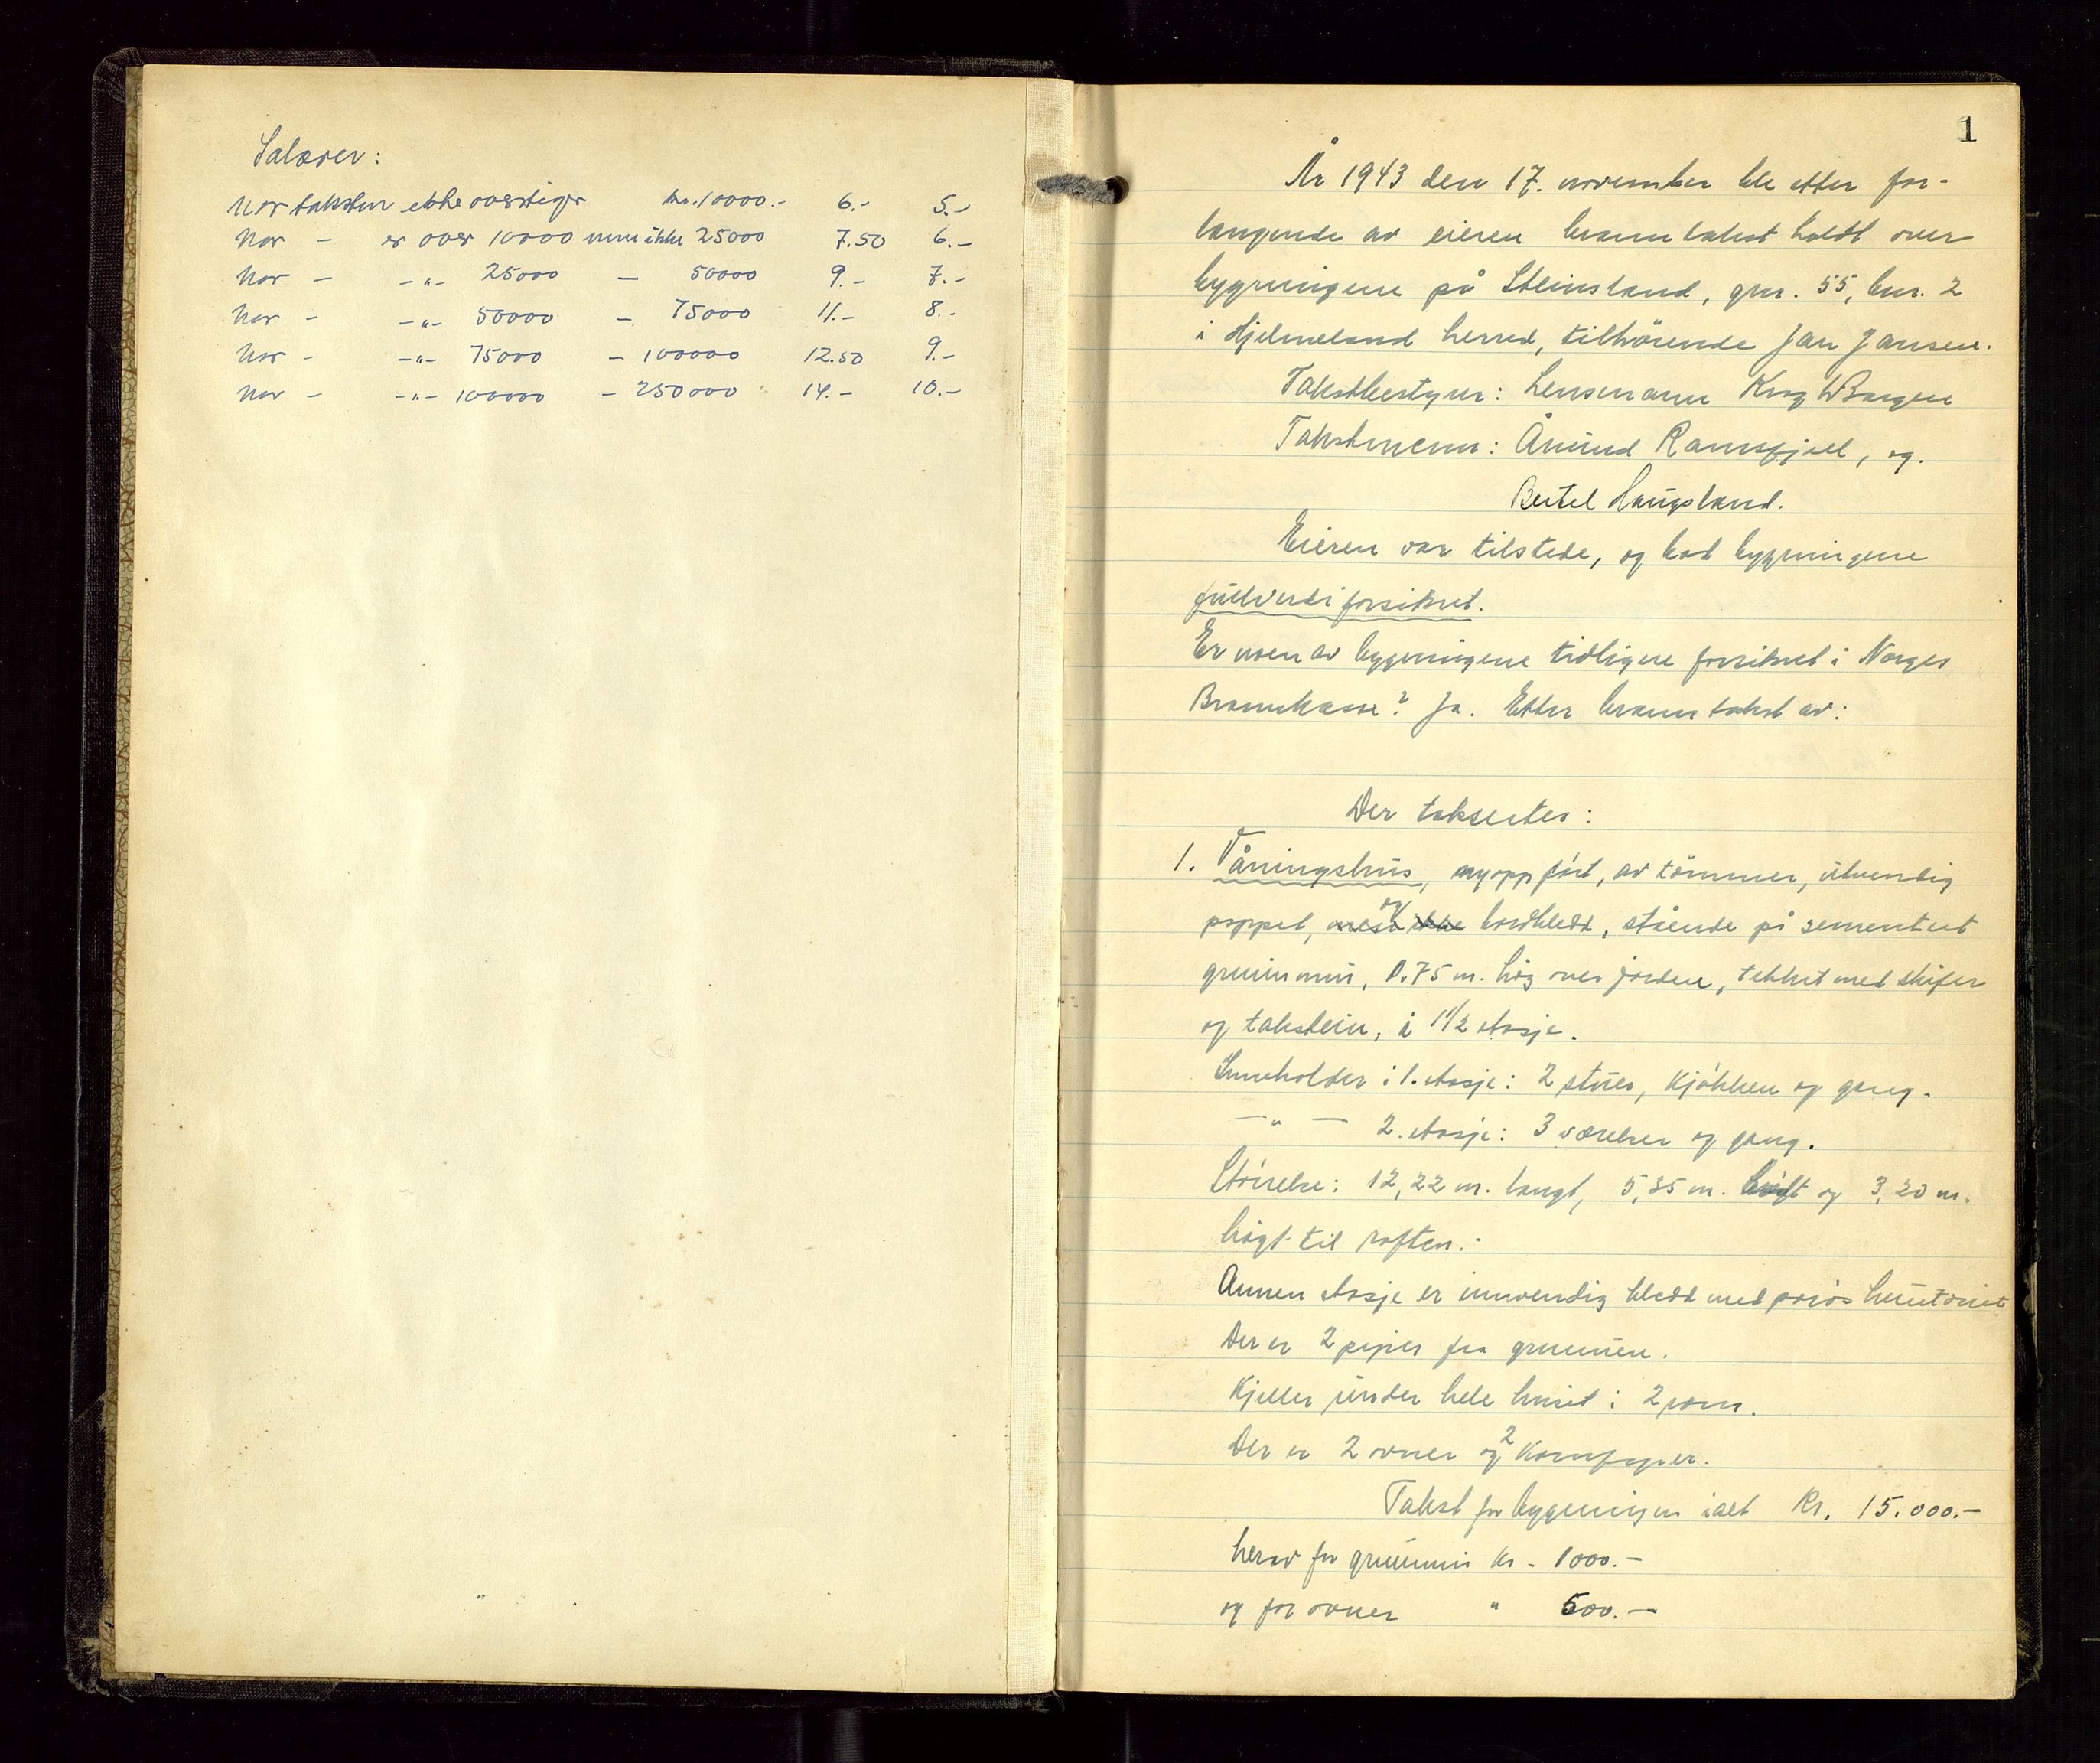 Salærer:
Når taksten ikke overstiger kr. 10000.- 6.- 5.-
Når - er over 10000 men ikke 25000 7.50 6.-
Når - -"- 25000 - 50000 9.- 7.-
Når - -"- 50000 - 75000 11.- 8.-
Når - -"- 75000 - 100000 12.50 9.-
Når - -"- 100000 - 250000 14.- 10.-
1
År 1943 den 17. november ble etter for-
langende av eieren branntakst holdt over
bygningene på Steinsland, gnr. 55, bnr. 2
i Hjelmeland herred, tilhörende Jan Jansen.
Takstbestyrer: Lensmann Krog
Takstmenn: Åmund Ramsfjell, og.
Bertel Haugsland.
Eieren var tilstede, og bad bygningene
fullverdiforsikret.
Er noen av bygningene tidligere forsikret i Norges
Brannkasse? Ja. Etter branntakst av:
Der taksertes:
1. Våningshus, nyoppfört, av tömmer, utvendig
pappet, men ikke og bordkledd, stående på sementert
grunnmur, 0.75 m. hög over jorden, tekket med skifer
og takstein, i 1 1/2 etasje.
Inneholder i 1. etasje: 2 stuer, kjökken og gang.
- " - 2. etasje: 3 værelser og gang.
Störrelse: 12,22 m. langt, 5,35 m. bredt og 3,20 m.
högt til raften.-
Annen etasje er innvendig kledd med porös huntonit
Der er 2 piper fra grunnen.
Kjeller under hele huset i 2 rom.
Der er 2 ovner og 2 komfyrer.
Takst for bygningen ialt Kr. 15.000.-
herav for grunnmur kr. 1000.-
og for ovner " 500.-